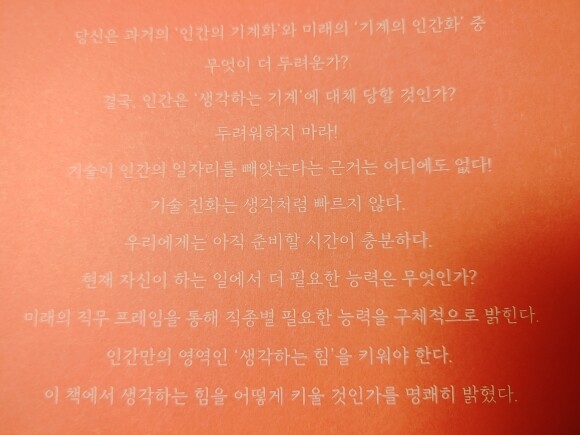 당신은 과거의 '인간의 기계화'와 미래의 '기계의 인간화' 중
무엇이 더 두려운가?
결국, 인간은 '생각하는 기계'에 대체 당할 것인가?
두려워하지 마라!
기술이 인간의 일자리를 빼앗는다는 근거는 어디에도 없다!
기술 진화는 생각처럼 빠르지 않다.
우리에게는 아직 준비할 시간이 충분하다.
현재 자신이 하는 일에서 더 필요한 능력은 무엇인가?
미래의 직무 프레임을 통해 직종별 필요한 능력을 구체적으로 밝힌다.
인간만의 영역인 '생각하는 힘'을 키워야 한다.
이 책에서 생각하는 힘을 어떻게 키울 것인가를 명쾌히 밝혔다.